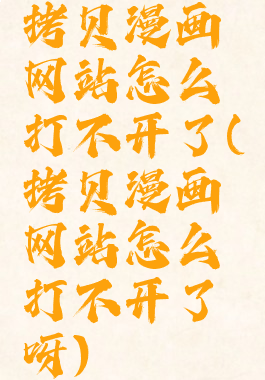 拷贝漫画
网站怎么
打不开了(
拷贝漫画
网站怎么
打不开了
呀)